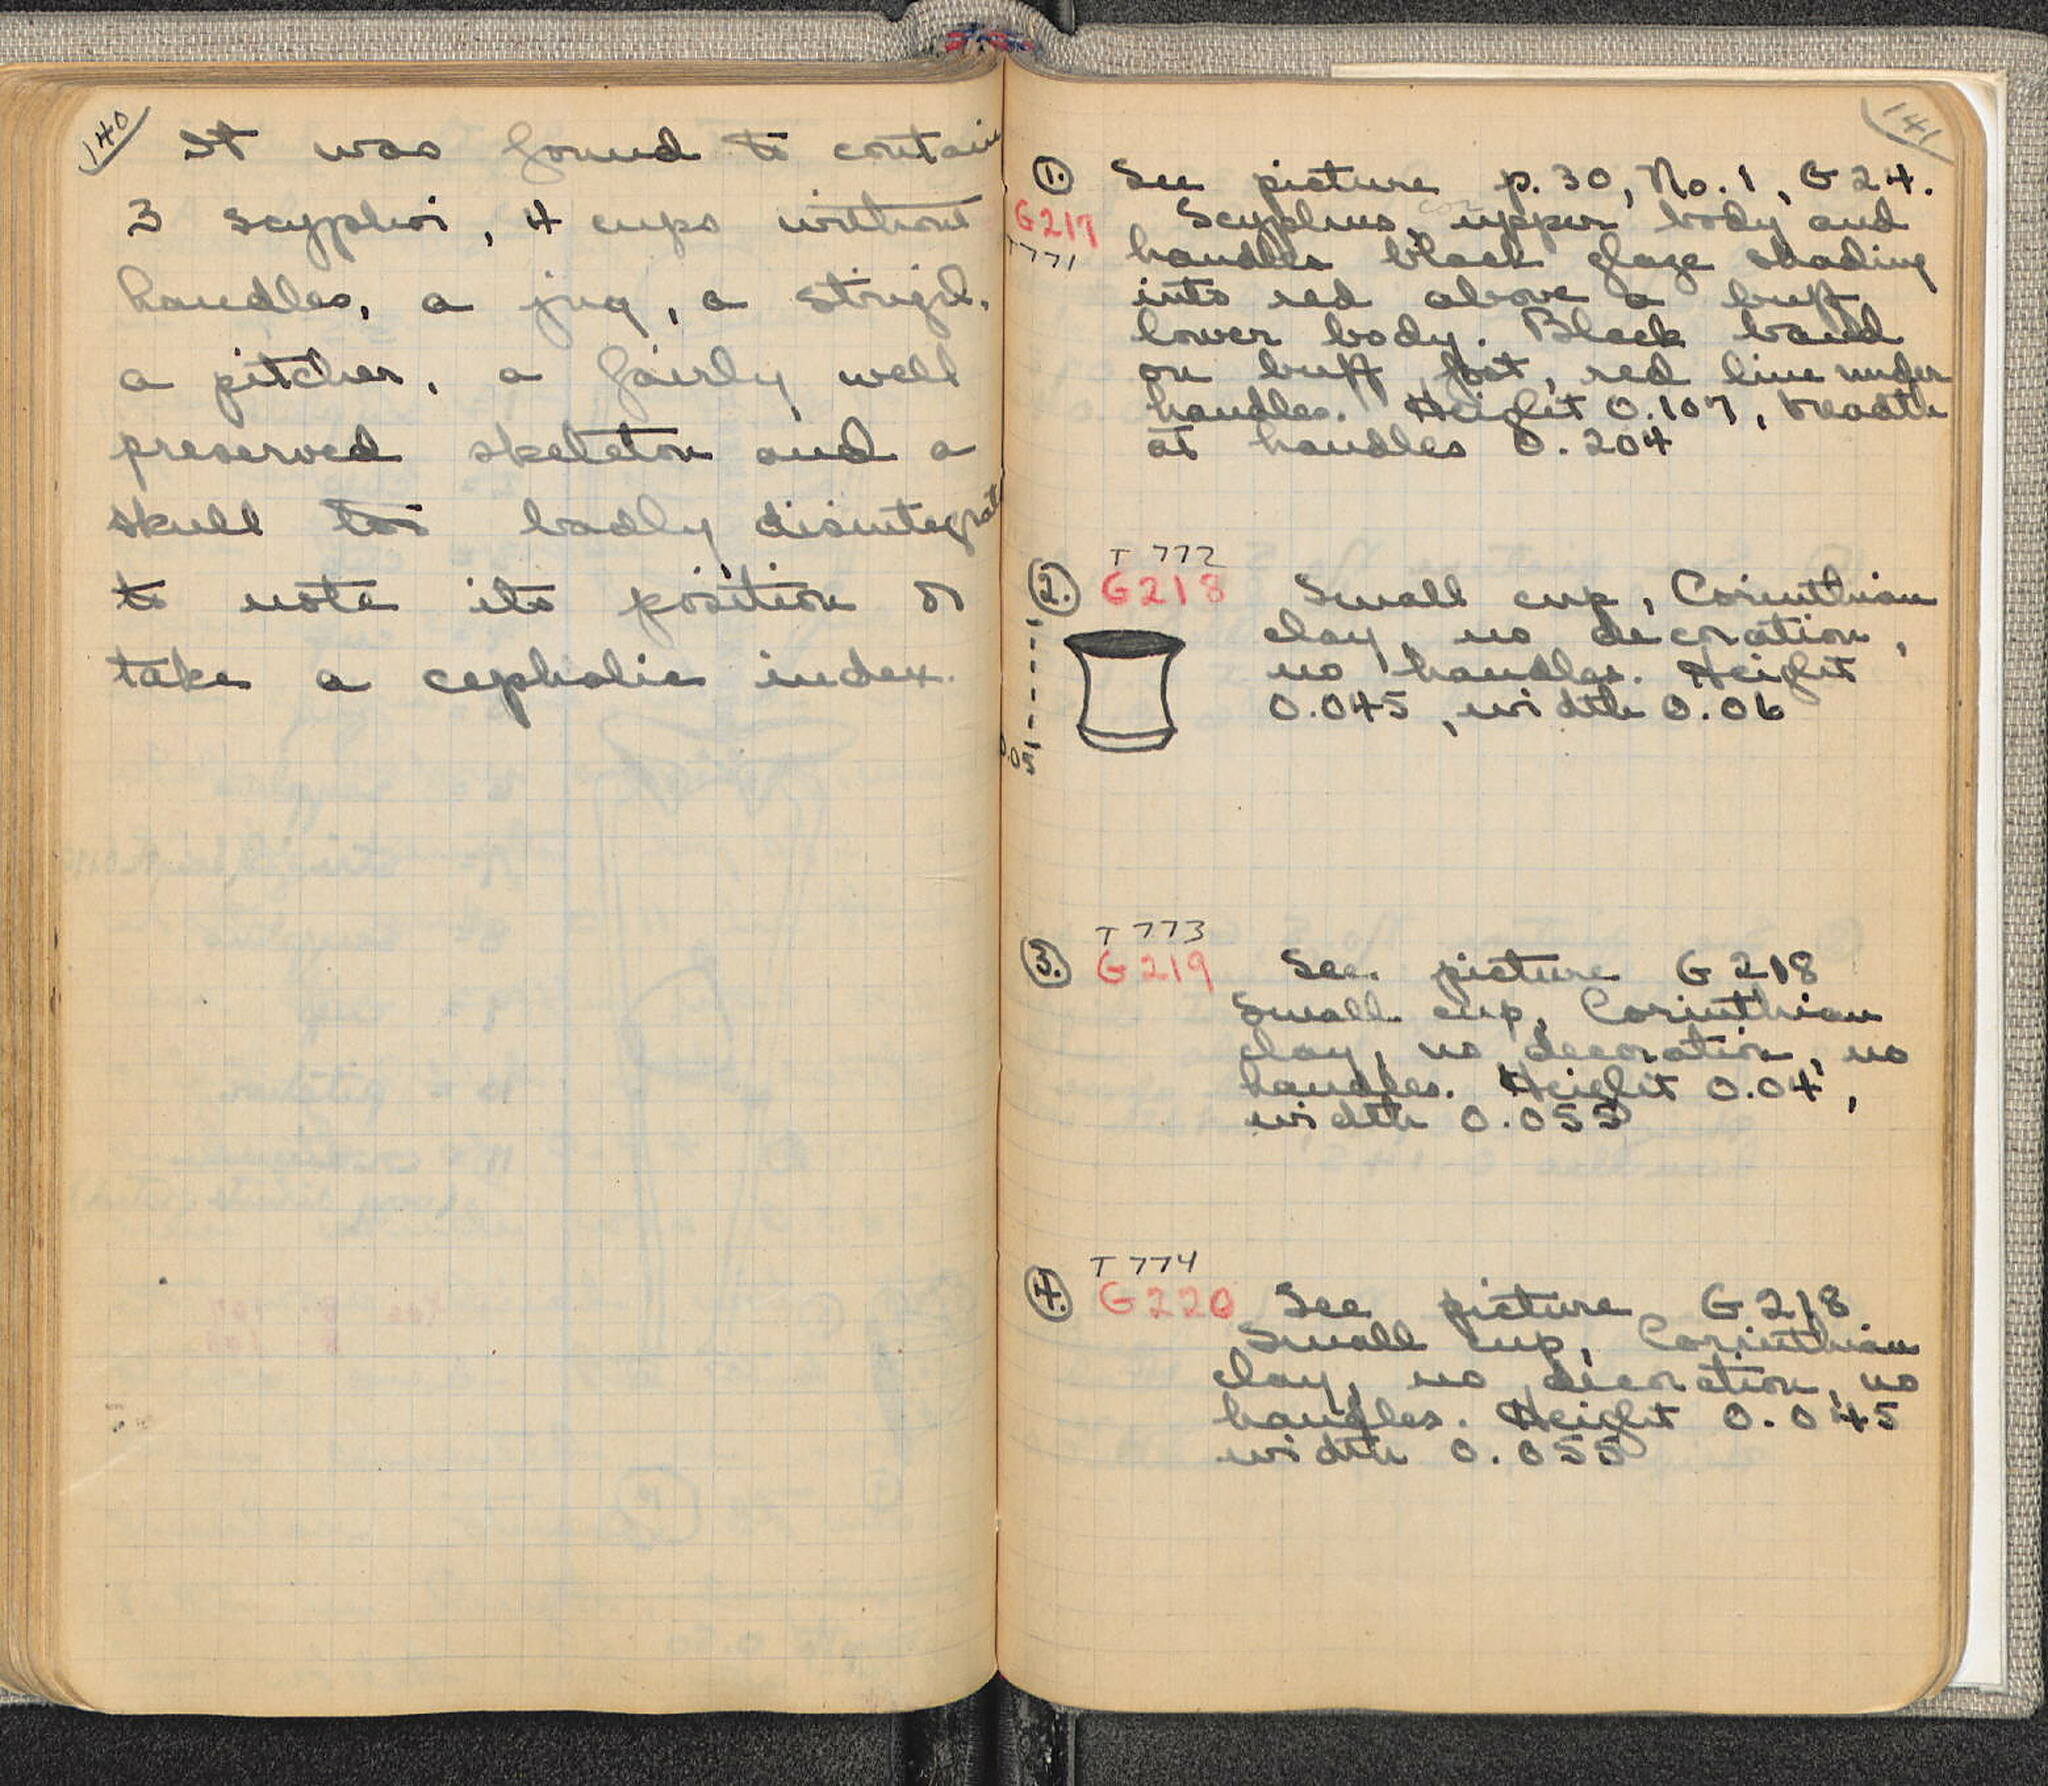 140
It was found to contain
3 scyphoi, 4 cups without
handles, a jug, a strigil,
a pitcher, a fairly well
preserved skeleton and a
skull too badly disintegrat
to note its position or
take a cephalic index.
141
1. See picture p. 30, No. 1, G 24.
G217 Scyphus, cor upper body and
T771 handles black glaze shading
into red above a buff
lower body. Black band
on buff foot, red line under
handles. Height 0.107, breadth
at handles 0.204
T 772
2. G218 Small cup, Corinthian
clay, no decoration,
no handles. Height
0.045, width 0.06
T 773
3. G219 See picture G 218
Small cup, Corinthian
clay, no decoration, no
handles. Height 0.04,
width 0.055
T 774
4. G220 See picture G 218
Small cup, Corinthian
clay, no decoration, no
handles. Height 0.045
width 0.055